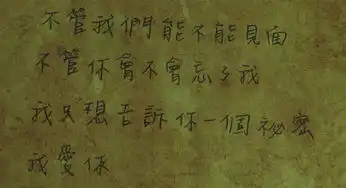 不管我們能不能見面
不管你會不會忘了我
我只想告訴你一個祕密
我愛你